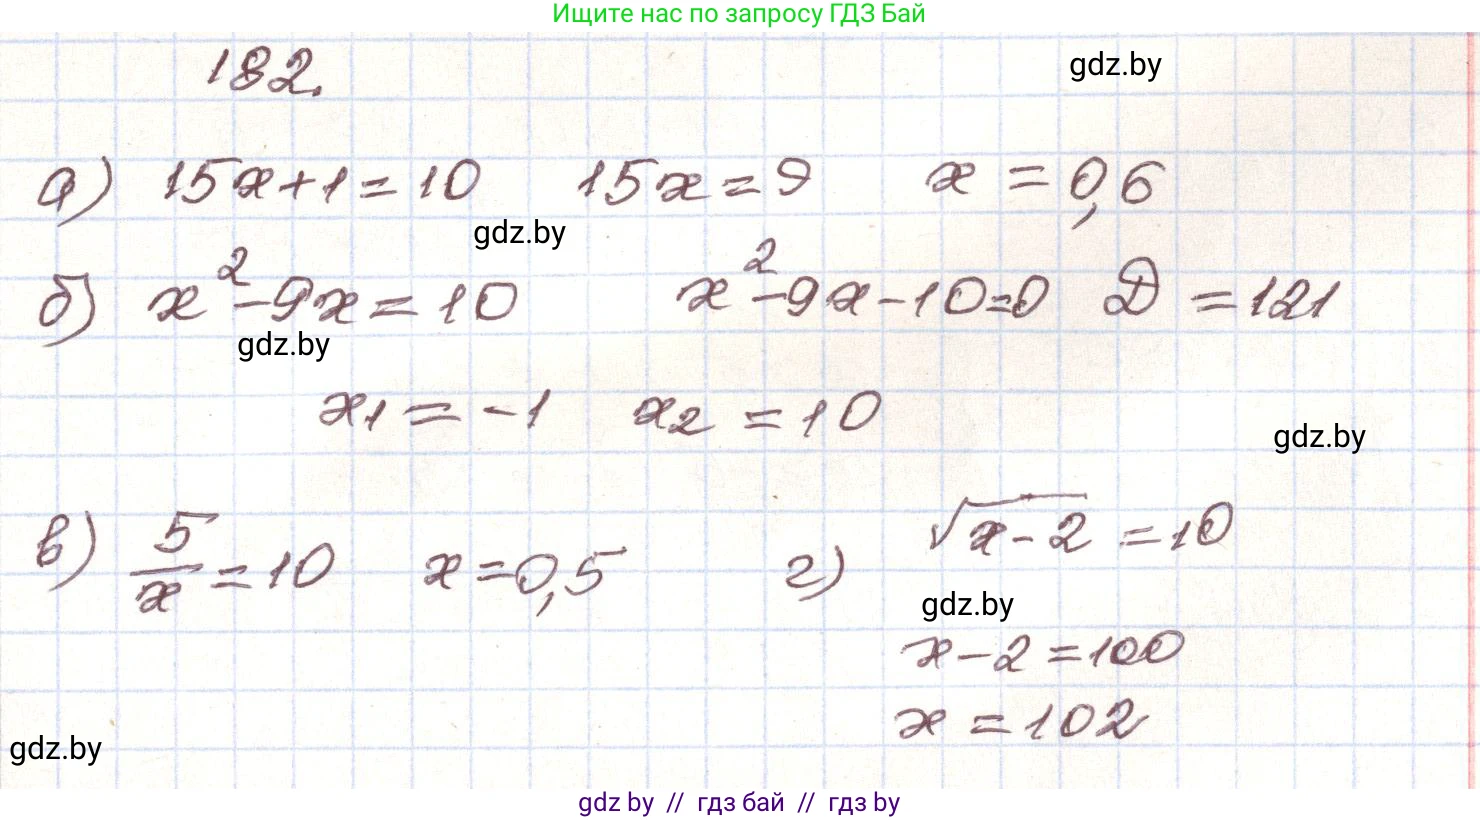 Ищите нас по запросу ГДЗ Бай
182.
gdz.by
а) 15x+1=10 15x=9 x=0,6
gdz.by
б) x²-9x=10 x²-9x-10=0 D=121
gdz.by
x₁=-1 x₂=10
gdz.by
в) 5/x=10 x=0,5 г) √x-2=10
gdz.by
x-2=100
x=102
gdz.by
gdz by // гдз бай // гдз by